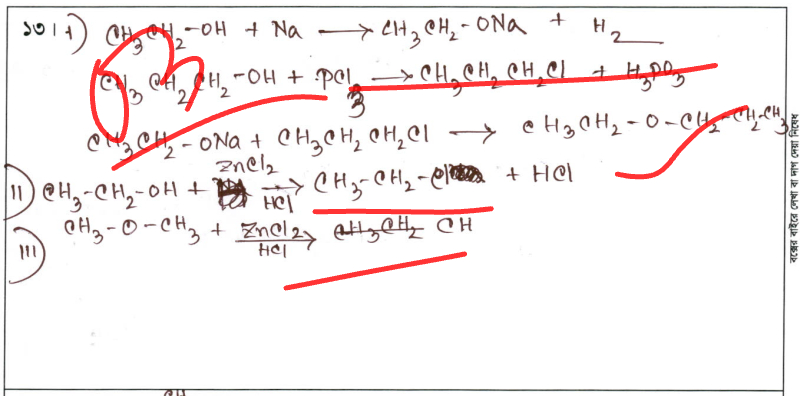 ১৩। i) CH3CH2-OH + Na → CH3CH2-ONa + H2
CH3CH2CH2-OH + PCl3 → CH3CH2CH2Cl + H3PO3
CH3CH2-ONa + CH3CH2CH2Cl → CH3CH2-O-CH2-CH2-CH3
II) CH3-CH2-OH + ZnCl2 → HCl CH3-CH2-Cl + HCl
III) CH3-O-CH3 + ZnCl2 → HCl CH3CH2 CH
বক্সের বাইরে লেখা বা দাগ দেয়া নিষেধ